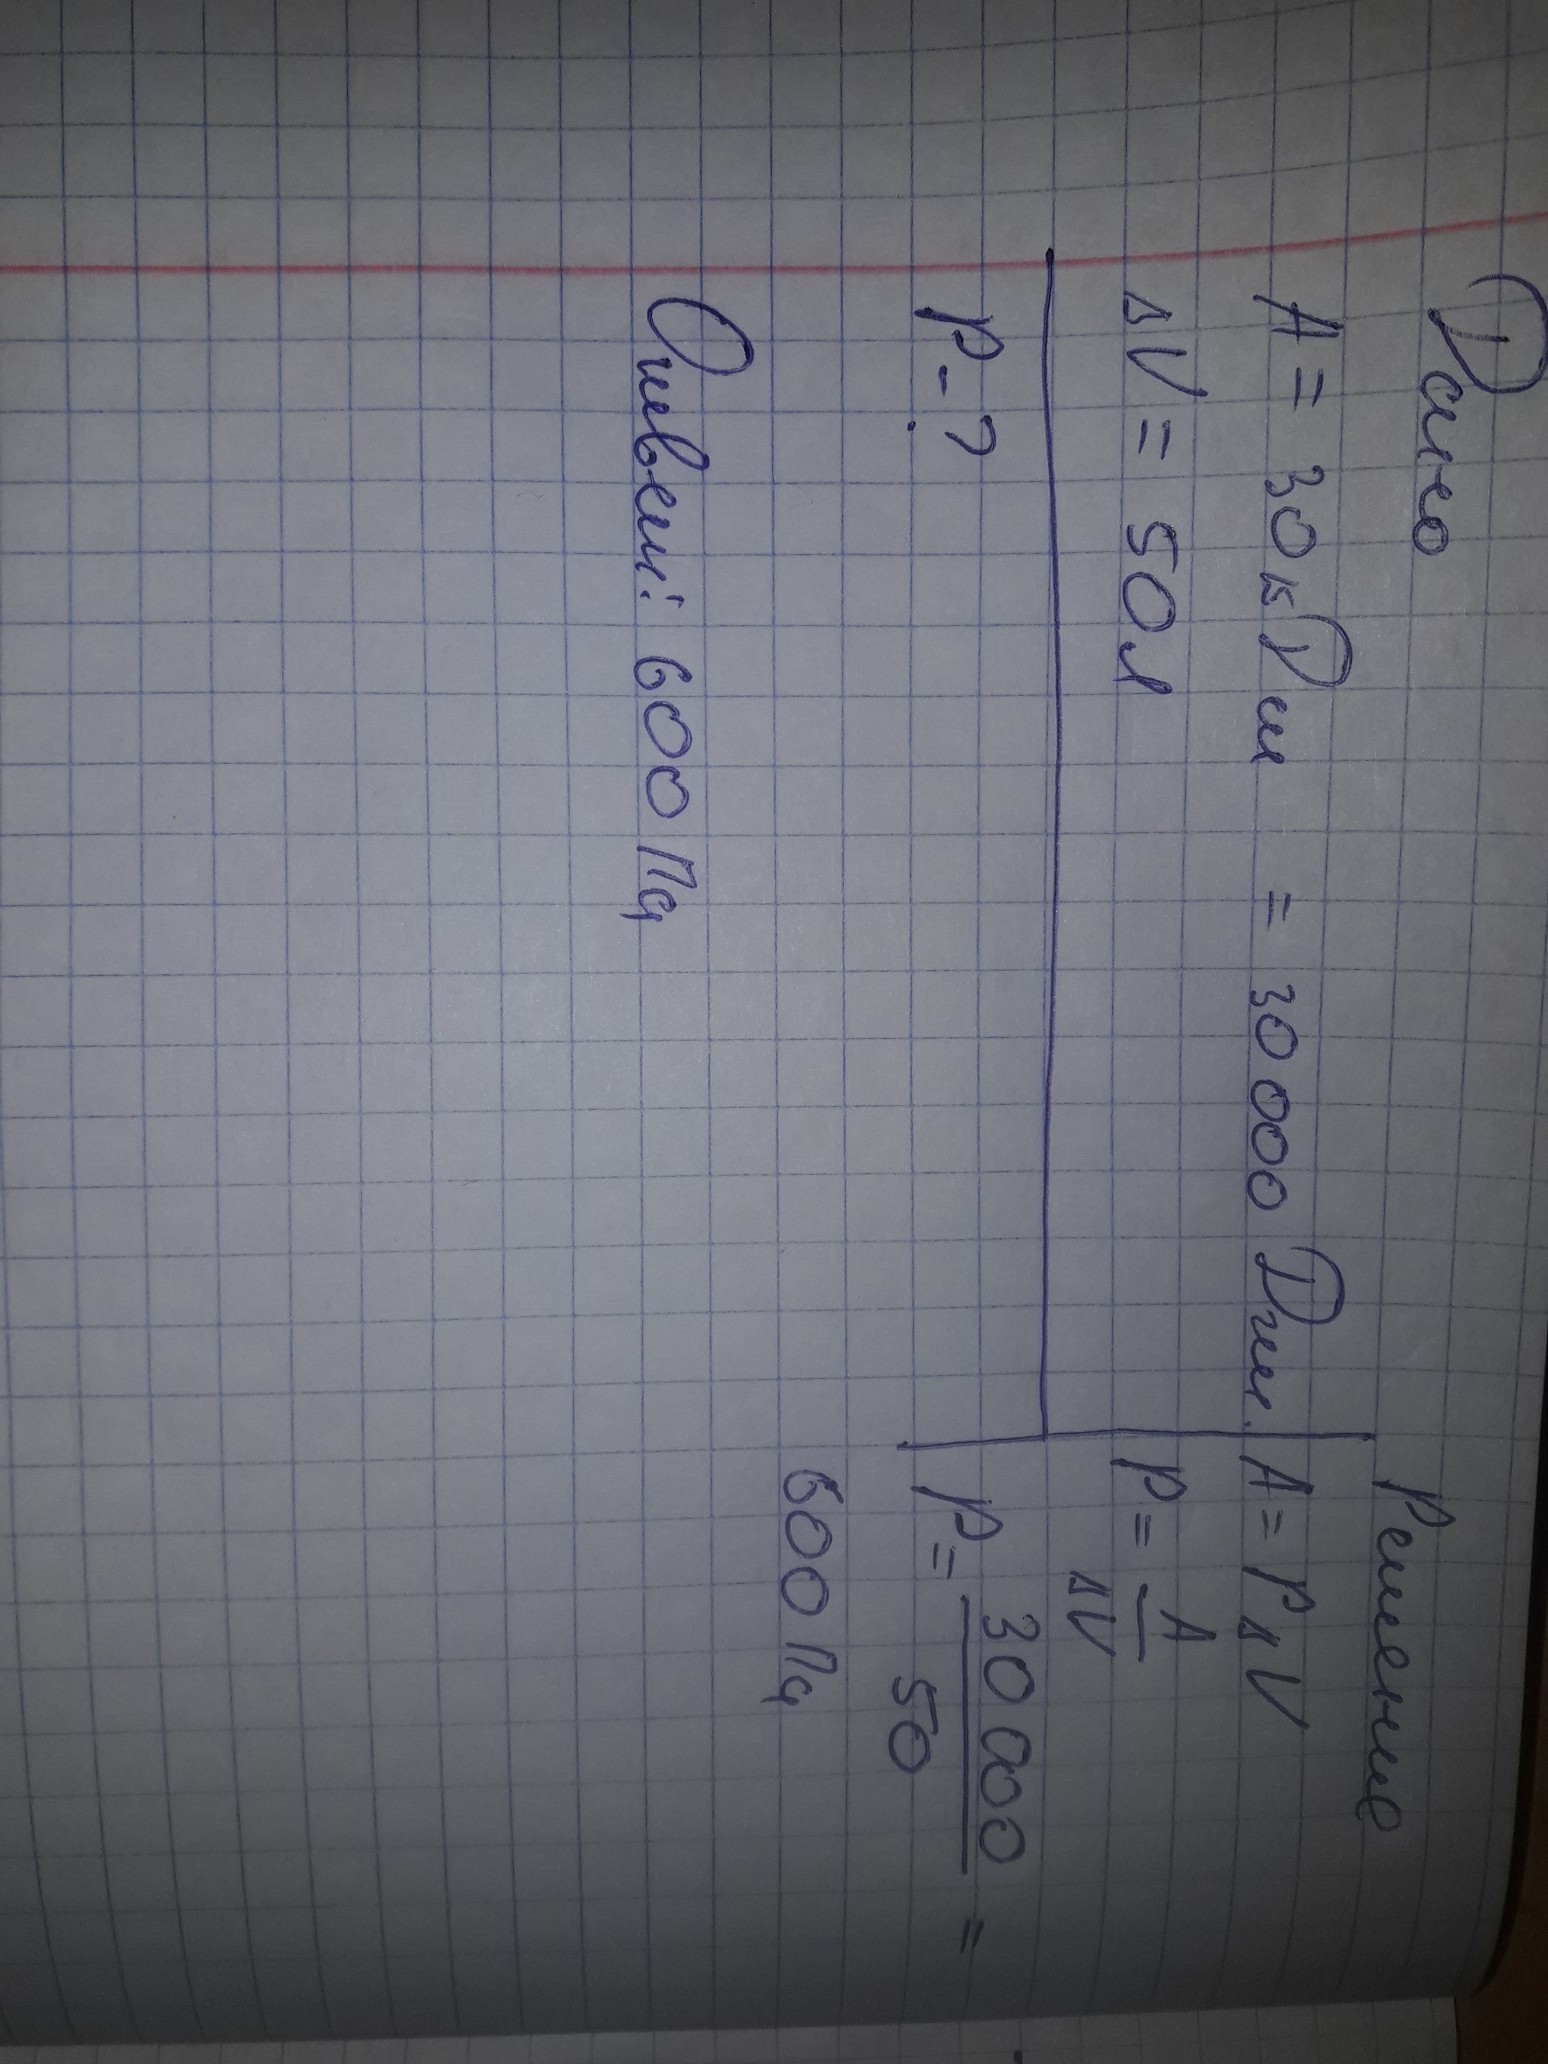 Дано
A = 30 кДж = 30 000 Дж.
ΔV = 50 л
P - ?
Решение
A = PΔV
P = A / ΔV
P = 30 000 / 50 =
600 Па
Ответ: 600 Па